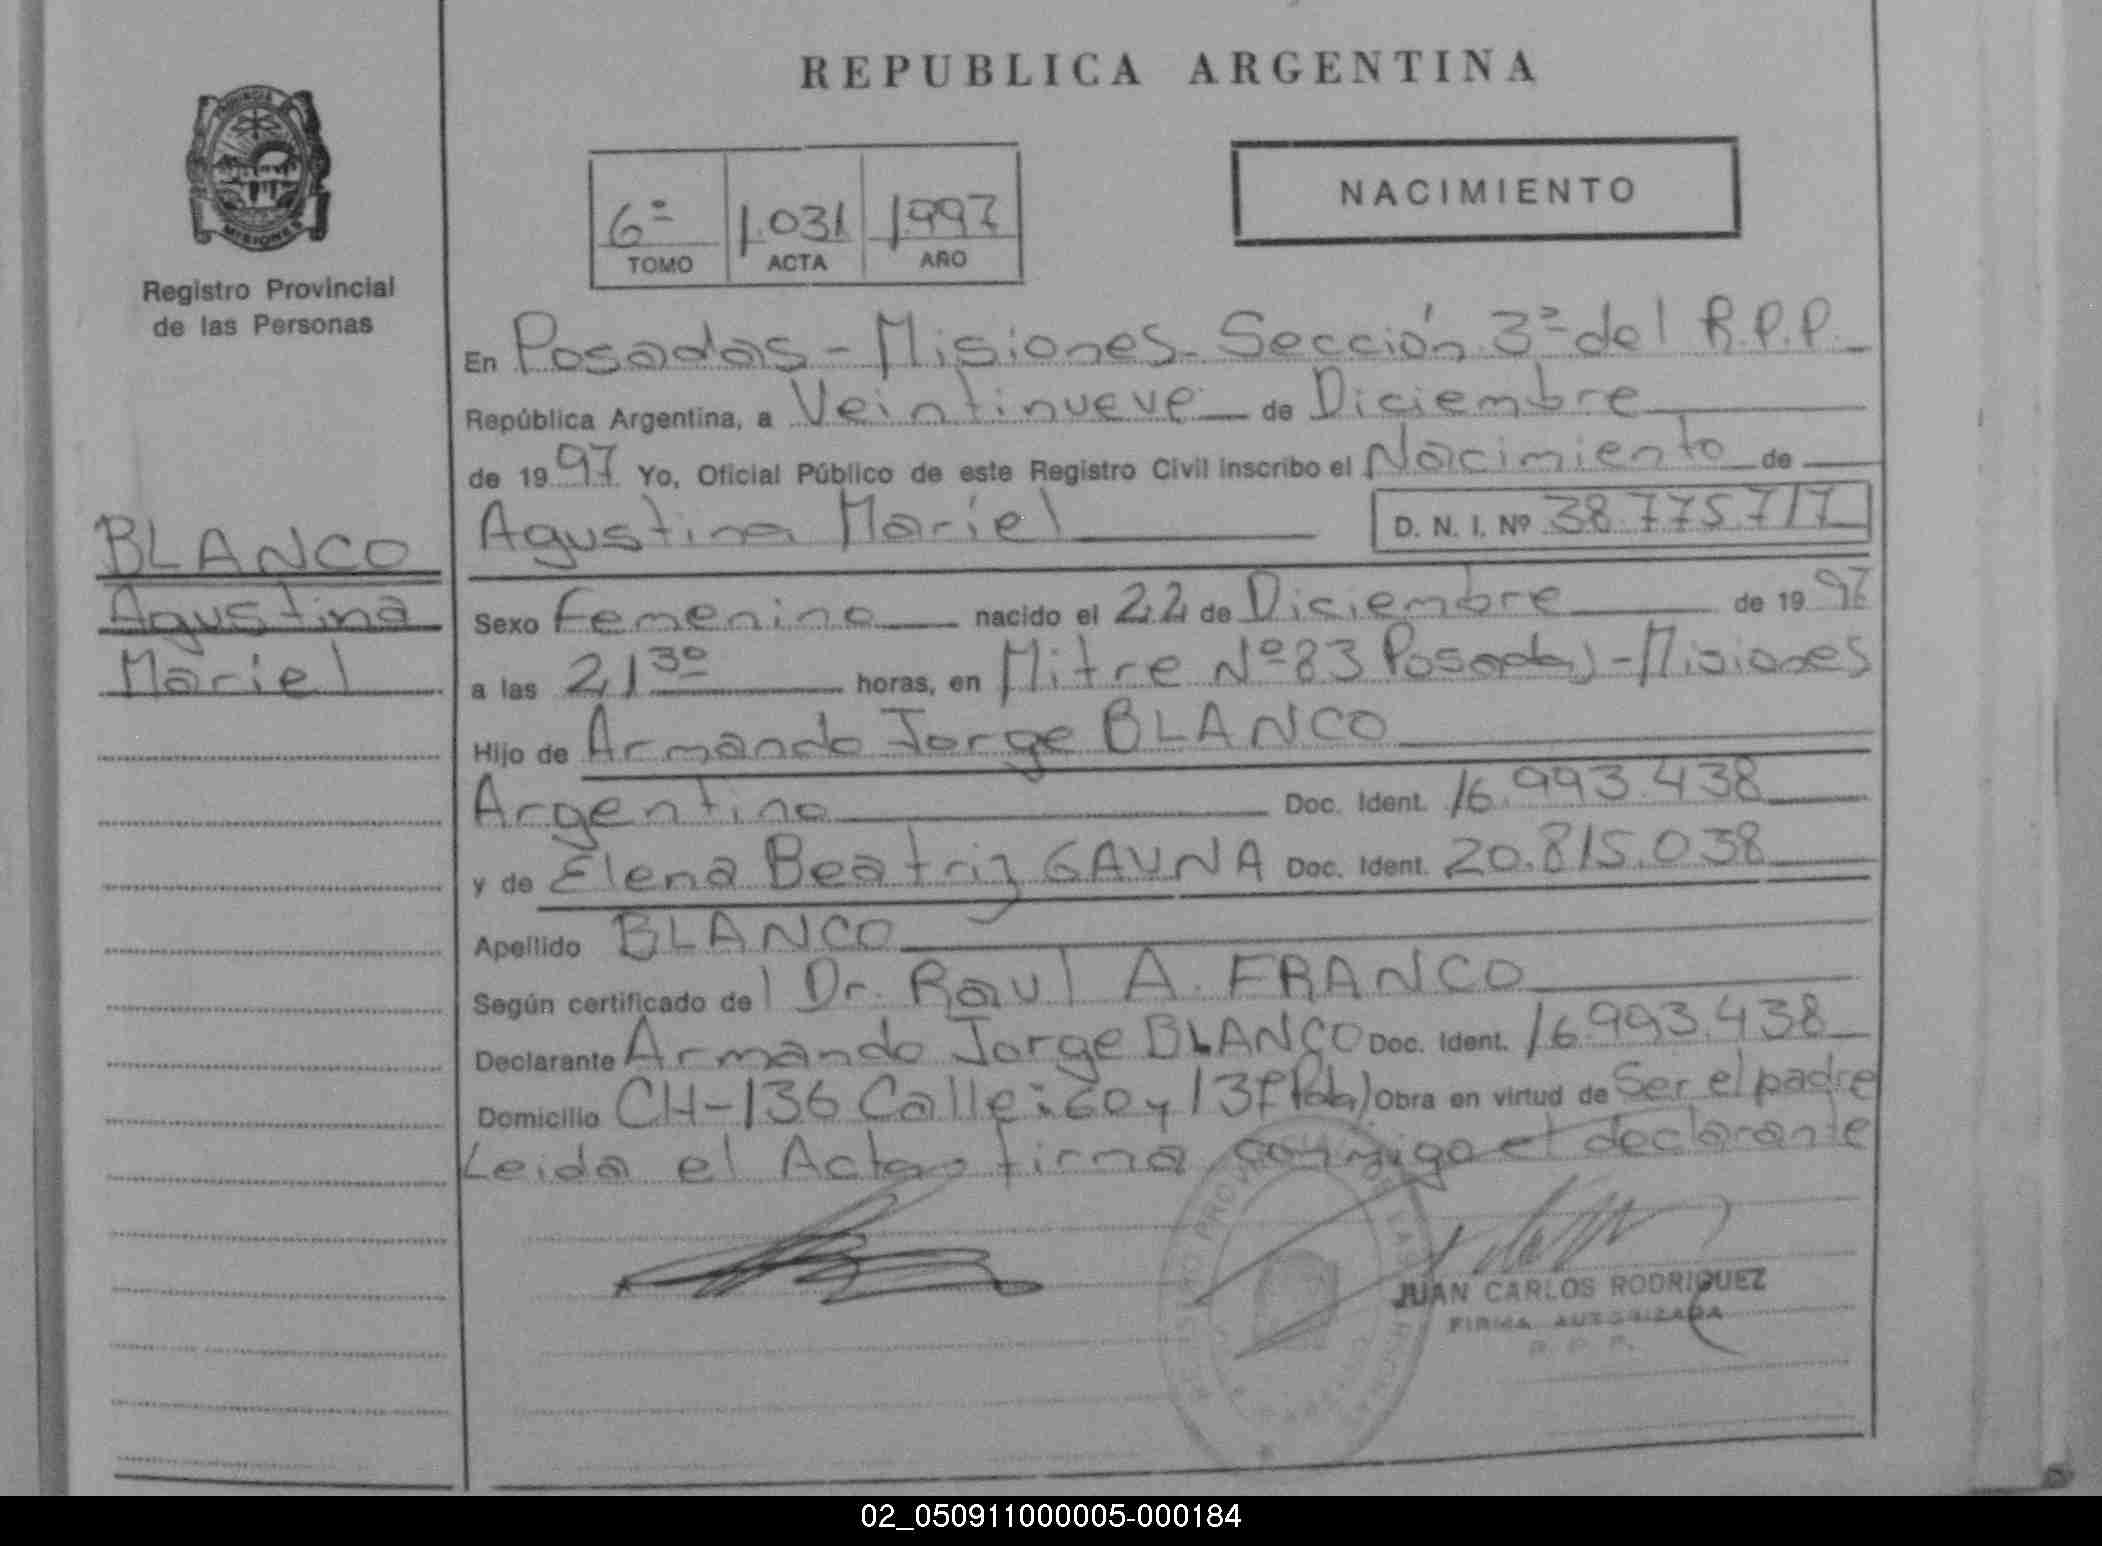 REPUBLICA ARGENTINA
MISIONES
Registro Provincial
de las Personas
6º 1.031 1997
TOMO ACTA AÑO
NACIMIENTO
En Posadas - Misiones - Sección 3ª del R.P.P.
República Argentina, a Veintinueve de Diciembre
de 1997 Yo, Oficial Público de este Registro Civil inscribo el Nacimiento de
BLANCO
Agustina
Mariel
Agustina Mariel D. N. I. Nº 38.775.717
Sexo Femenino nacido el 22 de Diciembre de 1997
a las 21 30 horas, en Mitre Nº 83 Posadas - Misiones
Hijo de Armando Jorge BLANCO
Argentino Doc. Ident. 16.993.438
y de Elena Beatriz GAUNA Doc. Ident. 20.815.038
Apellido BLANCO
Según certificado del Dr. Raul A. FRANCO
Declarante Armando Jorge BLANCO Doc. Ident. 16.993.438
Domicilio CH-136 Calle: 60 y Obra en virtud de Ser el padre
Leida el Acta firma conmigo el declarante
JUAN CARLOS RODRIGUEZ
FIRMA AUTORIZADA
R. P. P.
02_050911000005-000184